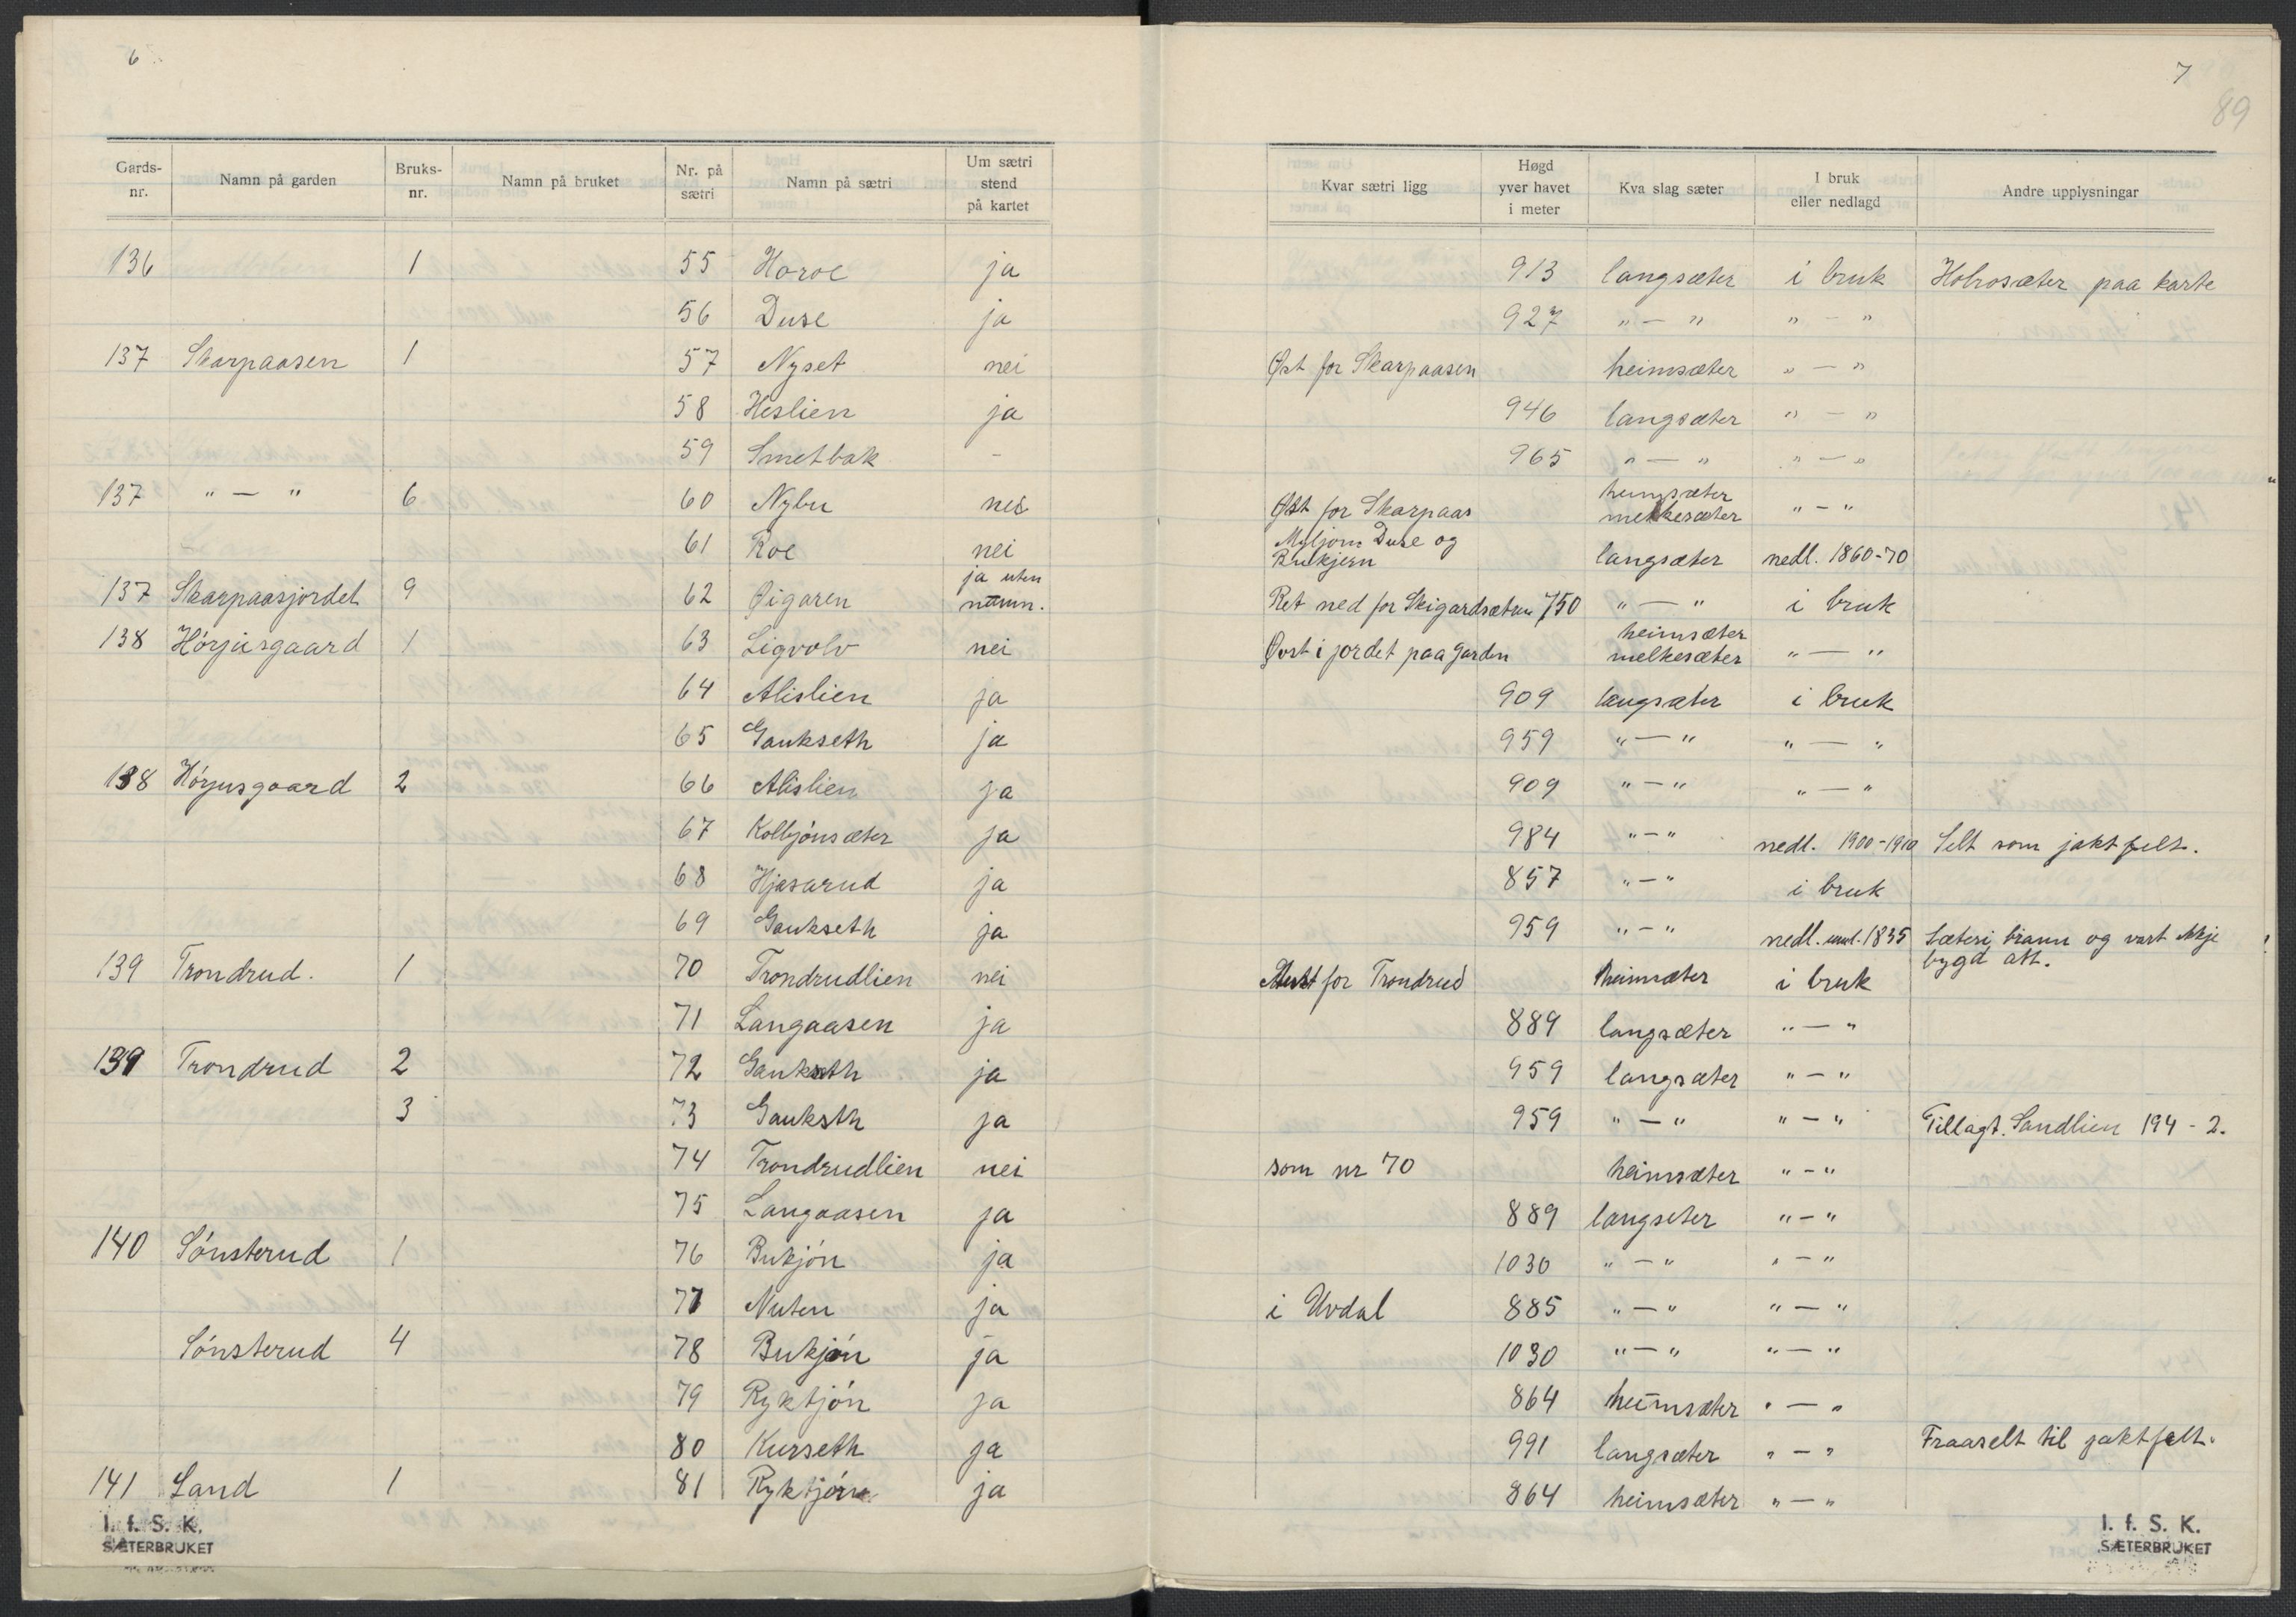 6
Gards-nr. Namn på garden Bruks-nr. Namn på bruket Nr. på sætri Namn på sætri Um sætri stend på kartet
136 1 55 Horoe ja
56 Duse ja
137 Skarpaasen 1 57 Nyset nei
58 Heslien ja
59 Smetbak -
137 " — " 6 60 Nybu nei
61 Roe nei
137 Skarpaasjordet 9 62 Øigaren ja uten namn.
138 Hörjusgaard 1 63 Ligvolv nei
64 Alislien ja
65 Gaukseth ja
138 Hörjusgaard 2 66 Alislien ja
67 Kolbjónsæter ja
68 Hjasarud ja
69 Gaukseth ja
139 Trondrud. 1 70 Trondrudlien nei
71 Langaasen ja
139 Trondrud 2 72 Gaukseth ja
3 73 Gauksth ja
74 Trondrudlien nei
75 Langaasen ja
140 Sónsterud 1 76 Bukjón ja
77 Nuten ja
Sónsterud 4 78 Bukjón ja
79 Ryktjón ja
80 Kurseth ja
141 Land 1 81 Ryktjórn ja
I. f. S. K.
SÆTERBRUKET
7
89
Kvar sætri ligg Høgd yver havet i meter Kva slag sæter I bruk eller nedlagd Andre upplysningar
913 langsæter i bruk Holrosæter paa karte
927 " — " " — "
Øst for Skarpaasen heimsæter " — "
946 langsæter " — "
965 " — " " — "
Øst for Skarpaas heimsæter melkesæter " — "
Myljom Duse og Bukjern langsæter nedl. 1860-70
Ret ned for Skigardsætren 750 " — " i bruk
Øvst i jordet paa garden heimsæter melkesæter " — "
909 langsæter i bruk
959 " — " " — "
909 " — " " — "
984 " — " nedl. 1900-1910 Selt som jaktfelt.
857 " — " i bruk
959 " — " nedl. uml. 1835 Sæteri brann og vart ikkje bygd att.
Aust for Trondrud heimsæter i bruk
889 langsæter " — "
959 langsæter " — "
959 " — " " — " Tillagt. Sandlien 194 - 2.
som nr 70 heimsæter " — "
889 langseter " — "
1030 " — " " — "
i Uvdal 885 " — " " — "
1030 " — " " — "
864 heimsæter " — "
991 langsæter " — " Fraaselt til jaktfelt.
864 heimsæter " — "
I. f. S. K.
SÆTERBRUKET